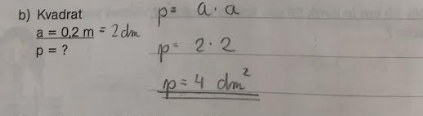 b) Kvadrat
a = 0,2 m = 2dm
p = ?
p = a · a
p = 2 · 2
p = 4 dm²